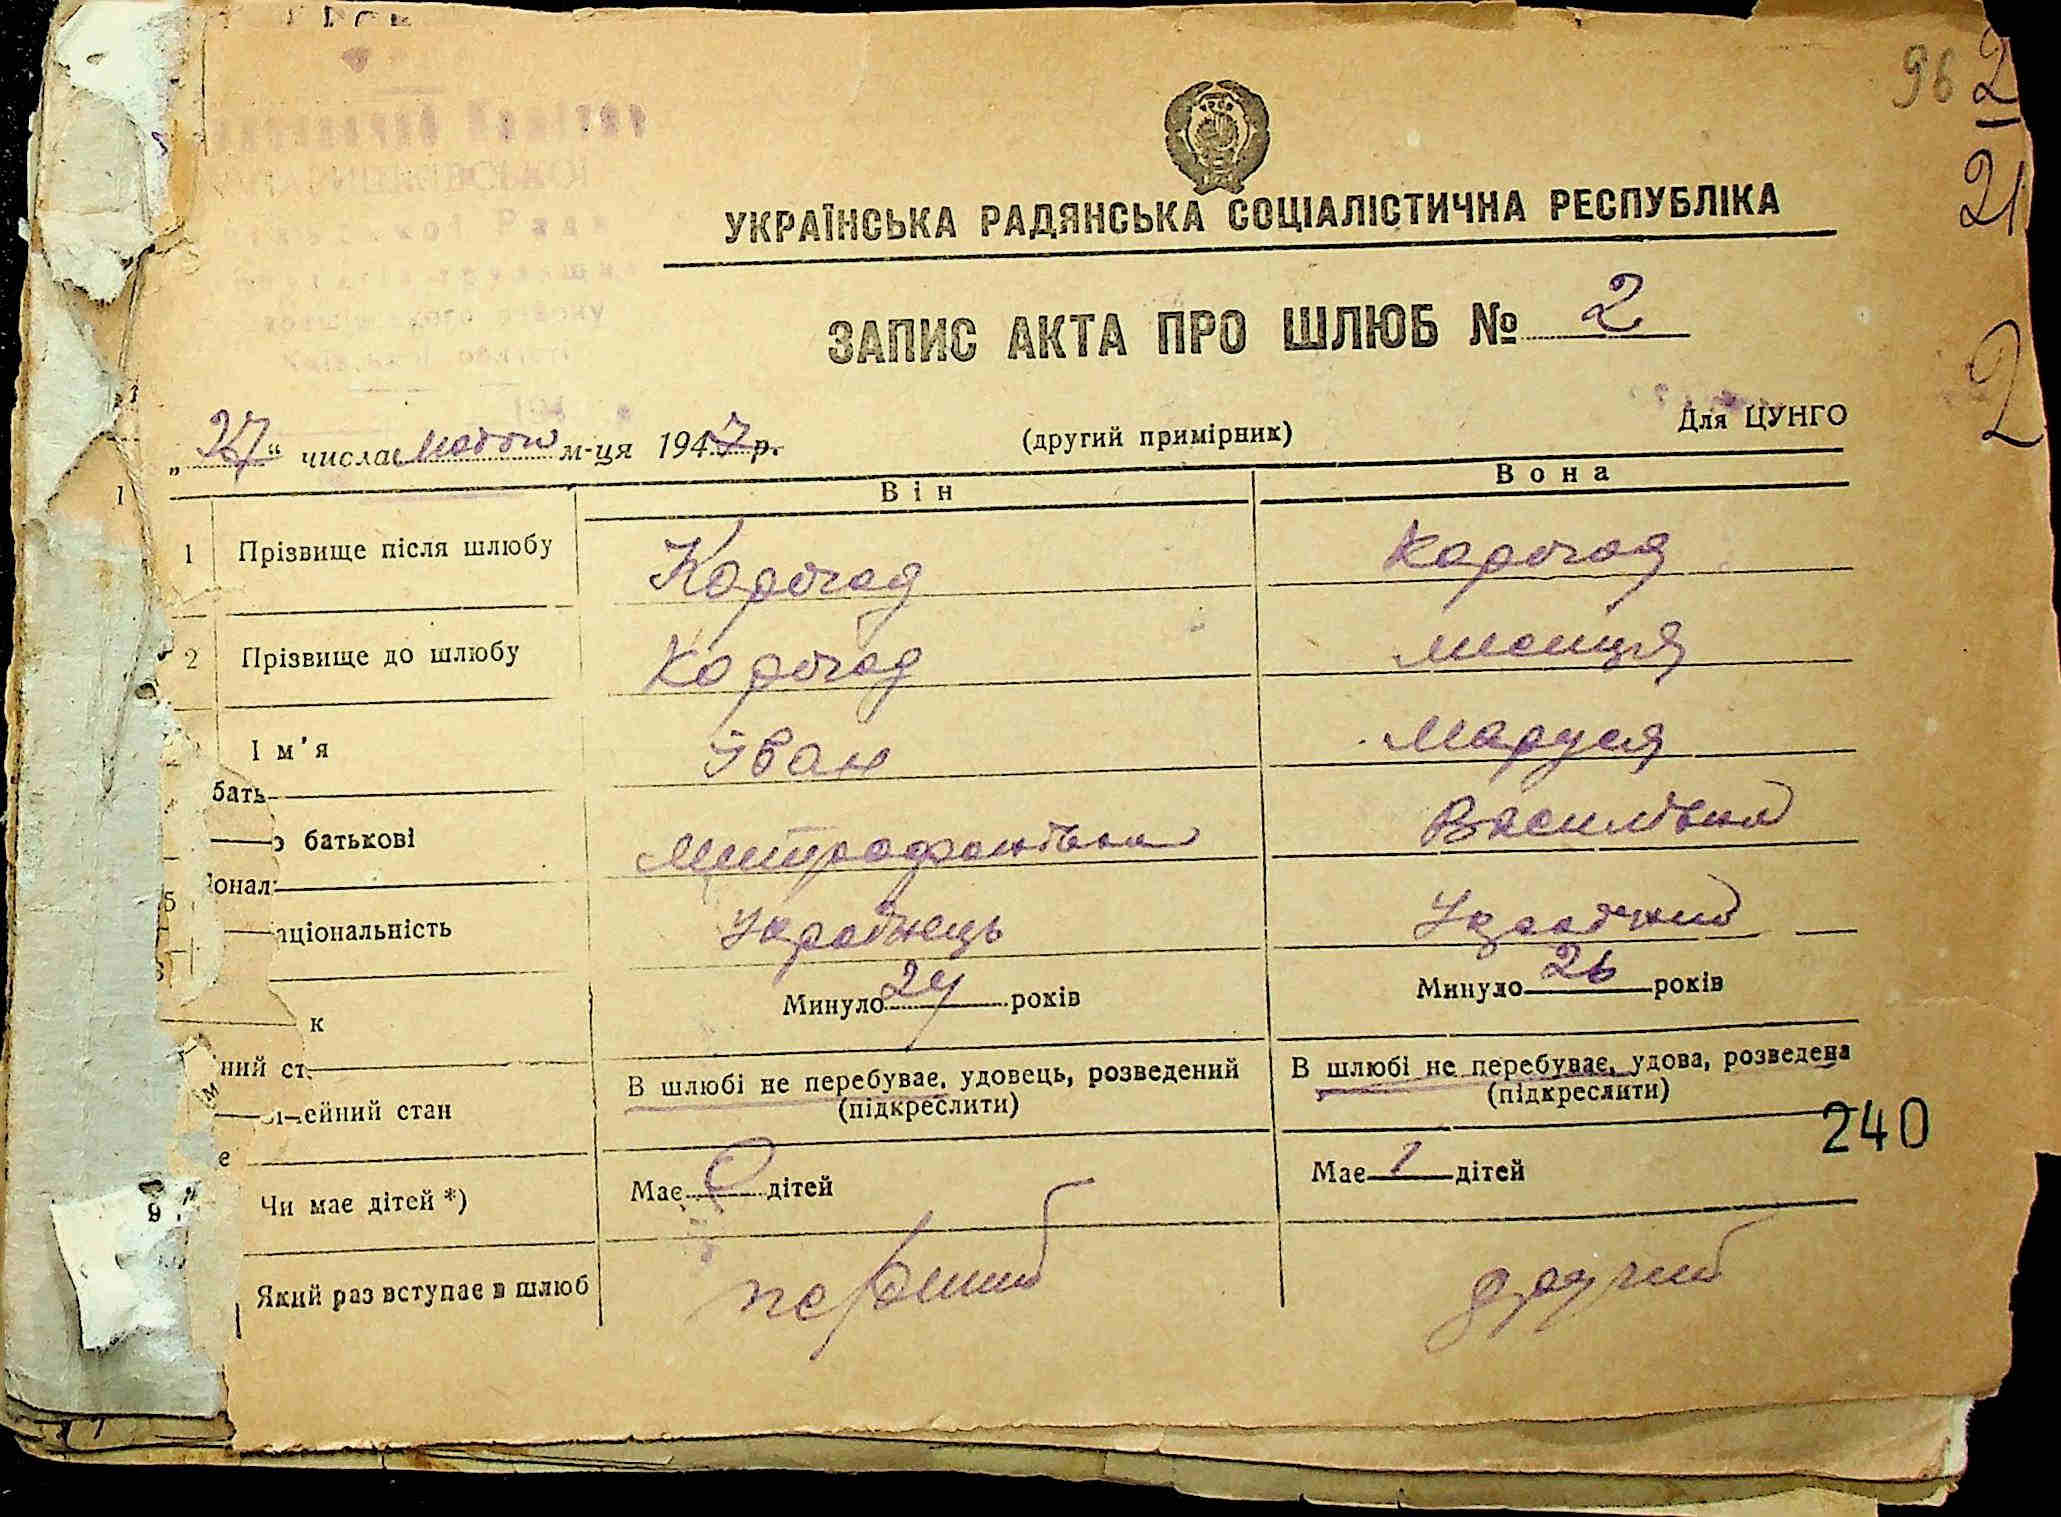 96 2
21
2
УКРАЇНСЬКА РАДЯНСЬКА СОЦІАЛІСТИЧНА РЕСПУБЛІКА
ЗАПИС АКТА ПРО ШЛЮБ № 2
„27“ числа м-ця 1947 р. (другий примірник) Для ЦУНГО
Він Вона
1 Прізвище після шлюбу Корогод Корогод
2 Прізвище до шлюбу Корогод
Ім'я Іван Маруся
бать
батькові Митрофанівич Василівна
онал
аціональність Українець Українка
к Минуло 24 років Минуло 26 років
ний ст
ейний стан В шлюбі не перебуває, удовець, розведений (підкреслити) В шлюбі не перебуває, удова, розведена (підкреслити)
240
Чи має дітей *) Має 0 дітей Має 1 дітей
Який раз вступає в шлюб перший другий